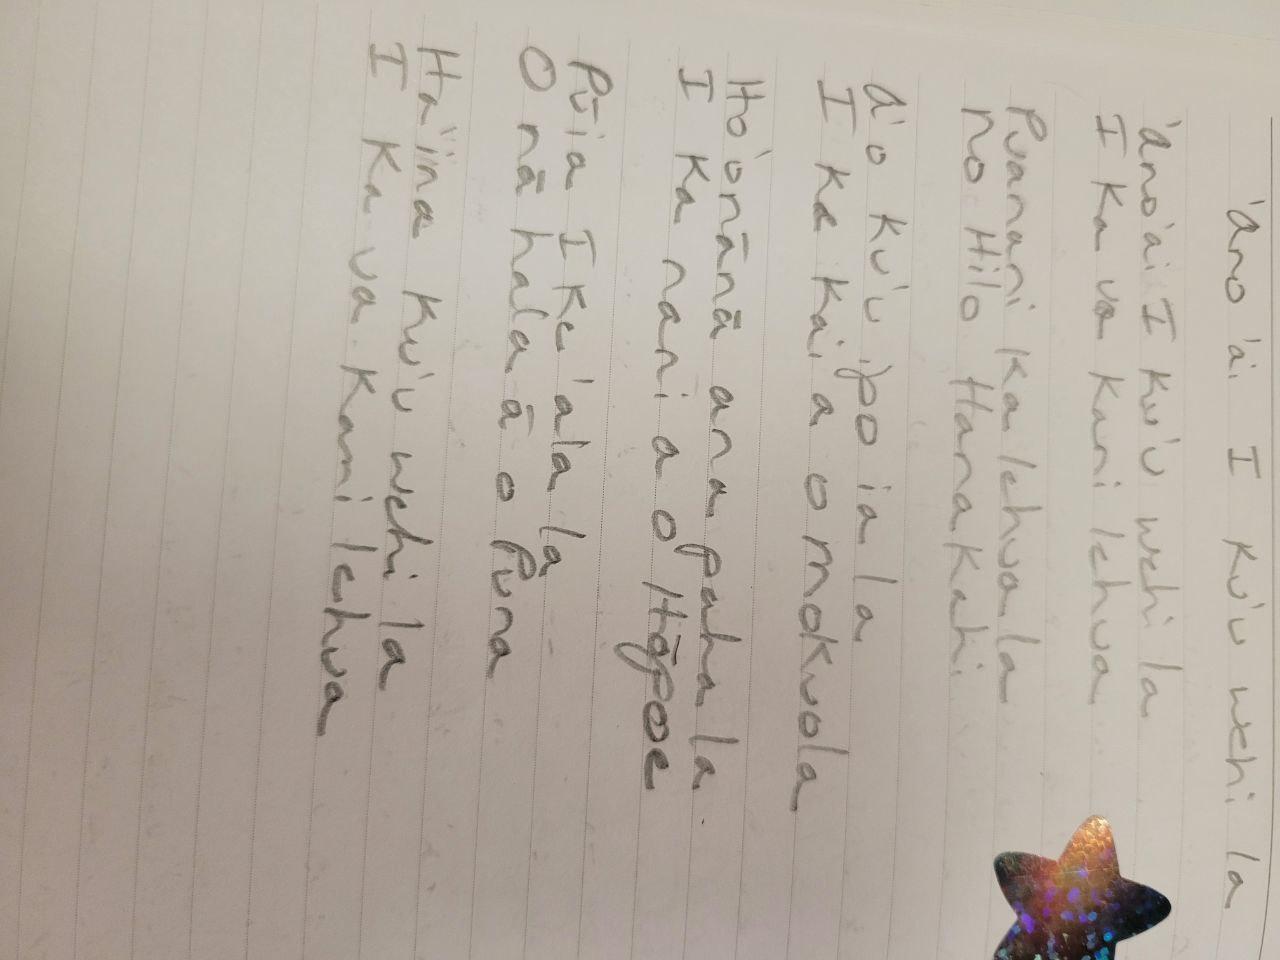 'Ano'ai I Ku'u wehi la
'Ano'ai I Ku'u wehi la
I Ka ua Kani lehua
Puanani Ka lehua la
No Hilo Hanakahi
A'o Ku'u ipo ia la
I Ka Kai a o mokuola
Ho'onānā ana paha la.
I Ka nani a o Hōpoe
Pūia I Ke 'ala la
O nā hala ā o Puna
Ha'ina Ku'u wehi la
I Ka ua Kani lehua